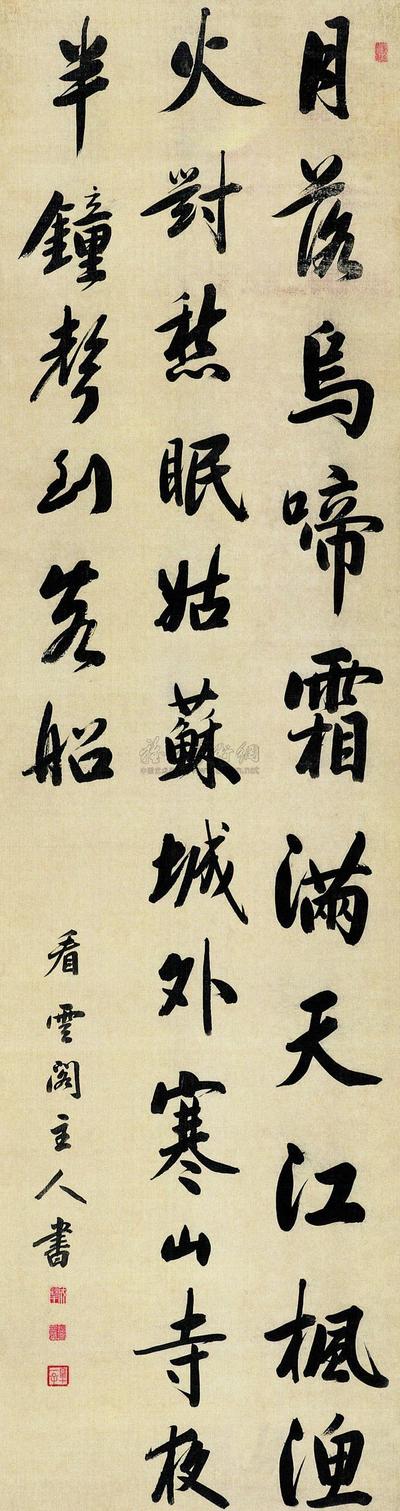 月落烏啼霜滿天江楓漁
火對愁眠姑蘇城外寒山寺夜
半鐘聲到客船
看雲閣主人書